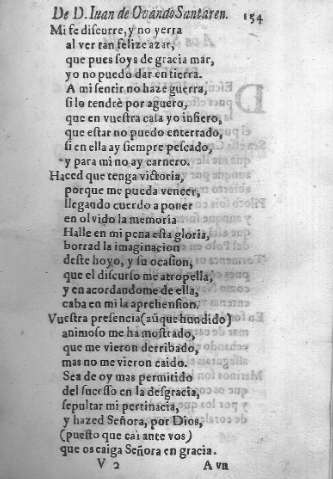 De D. Iuan de Ovando Santaren. 154
Mi fe discurre, y no yerra
al ver tan felize azar,
que pues soys de gracia mar,
yo no puedo dar en tierra.
A mi sentir no haze guerra,
si lo tendrè por aguero,
que en vuestra casa yo infiero,
que estar no puedo enterrado,
si en ella ay siempre pescado,
y para mi no ay carnero.
Haced que tenga victoria,
porque me pueda vencer,
llegando cuerdo a poner
en olvido la memoria
Halle en mi pena esta gloria,
borrad la imaginacion
deste hoyo, y su ocasion,
que el discurso me atropella,
y en acordandome de ella,
caba en mi la aprehension.
Vuestra presencia (aũque hundido)
animoso me ha mostrado,
que me vieron derribado,
mas no me vieron caido.
Sea de oy mas permitido
del sucesso en la desgracia,
sepultar mi pertinacia,
y hazed Señora, por Dios,
(puesto que cai ante vos)
que os caiga Señora en gracia.
V 2 A vn